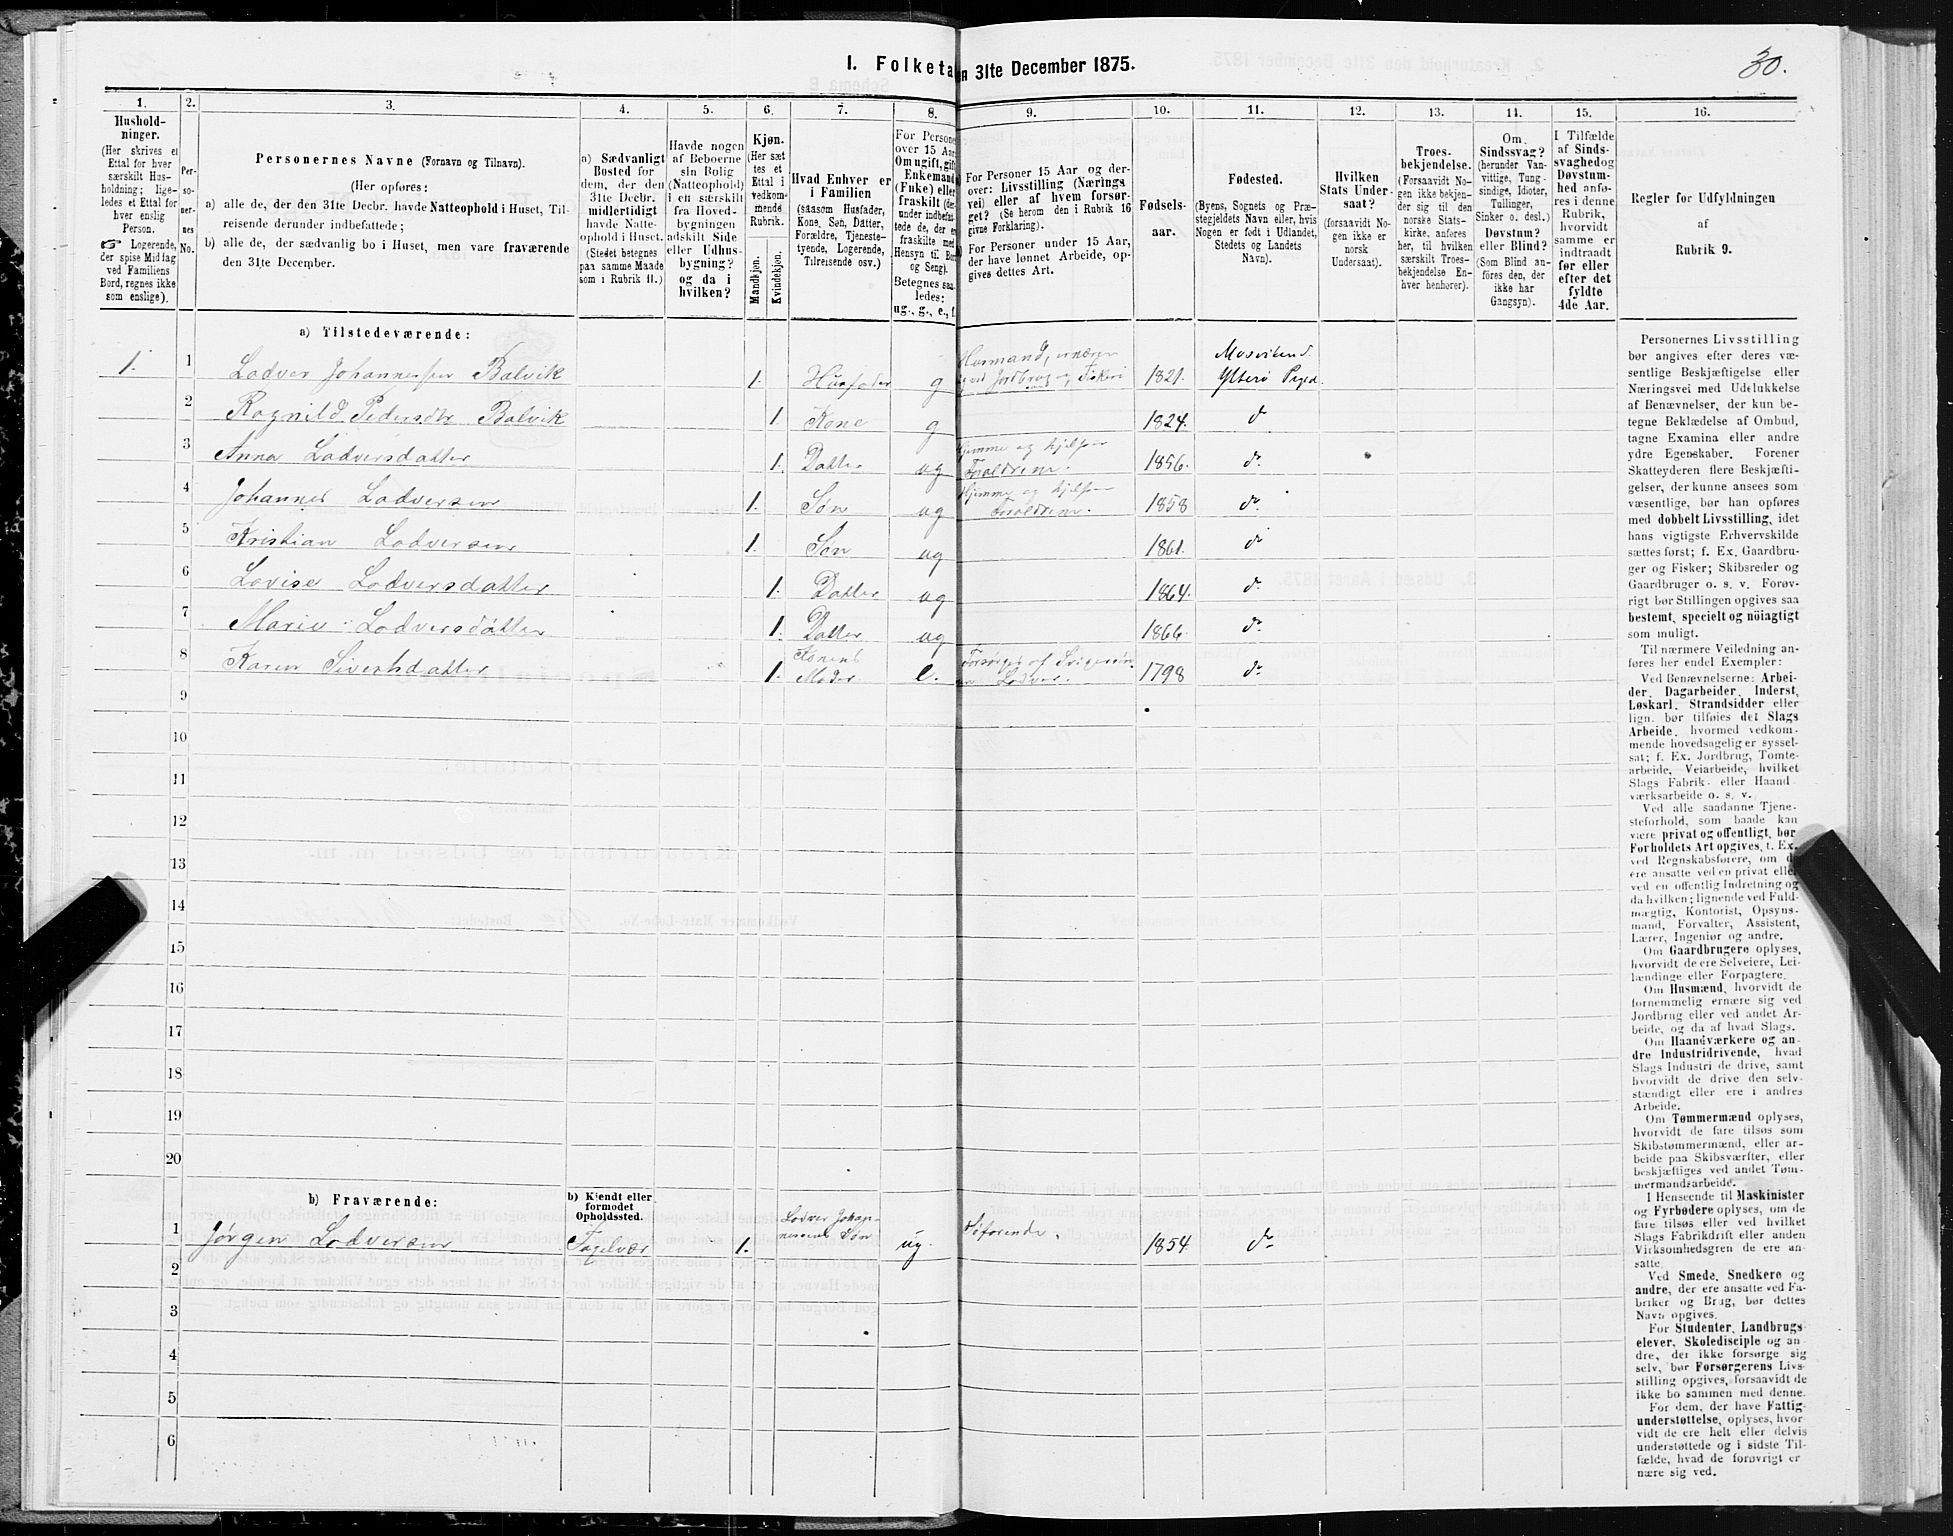 I. Folketa n 31te December 1875.
30.
1.
Hushold-
ninger.
(Her skrives et
Ettal for hver
særskilt Hus-
holdning; lige-
ledes et Ettal for
hver enslig
Person.
☞ Logerende,
der spise Middag
ved Familiens
Bord, regnes ikke
som enslige).
2.
Per-
so-
ner-
nes
No.
3.
Personernes Navne (Fornavn og Tilnavn).
(Her opføres:
a) alle de, der den 31te Decbr. havde Natteophold i Huset, Til-
reisende derunder indbefattede;
b) alle de, der sædvanlig bo i Huset, men vare fraværende
den 31te December.
4.
a) Sædvanligt
Bosted for
dem, der den
31te Decbr.
midlertidigt
havde Natte-
ophold i Huset.
(Stedet betegnes
paa samme Maade
som i Rubrik 11.)
5.
Havde nogen
af Beboerne
sin Bolig
(Natteophold)
i en særskilt
fra Hoved-
bygningen
adskilt Side
eller Udhus-
bygning?
og da i
hvilken?
6.
Kjøn.
(Her sæt-
tes et
Ettal i
vedkom-
mende
Rubrik.
Mandkjøn.
Kvindekjøn.
7.
Hvad Enhver er
i Familien
(saasom Husfader,
Kone, Søn, Datter,
Forældre, Tjeneste-
tyende, Logerende,
Tilreisende osv.)
8.
For Persone
over 15 Aar
Om ugift, gift
Enkemand
(Enke) eller
fraskilt (der-
under indbefat-
tede de, der er
fraskilte med
Hensyn til Bord
og Seng).
Betegnes saa-
ledes:
ug., g., e., f.
9.
a) For Personer 15 Aar og der-
over: Livsstilling (Nærings
vei) eller af hvem forsør-
get? (Se herom den i Rubrik 16
givne Forklaring).
b) For Personer under 15 Aar,
der have lønnet Arbeide, op-
gives dettes Art.
10.
Fødsels-
aar.
11.
Fødested.
(Byens, Sognets og Præ-
stegjeldets Navn eller, hvis
Nogen er født i Udlandet,
Stedets og Landets
Navn).
12.
Hvilken
Stats Under-
saat?
(forsaavidt No-
gen ikke er
norsk
Undersaat).
13.
Troes-
bekjendelse.
(Forsaavidt No-
gen ikke bekjen-
der sig til den
norske Stats-
kirke, anføres
her, til hvilken
særskilt Troes-
bekjendelse En-
hver henhører).
14.
Om
Sindssvag?
(herunder Van-
vittige, Tung-
sindige, Idioter,
Tullinger,
Sinker o. desl.)
Døvstum?
eller Blind?
(Som Blind an-
føres den, der
ikke har
Gangsyn).
15.
I Tilfælde
af Sinds-
svaghed og
Døvstum-
hed anfø-
res i denne
Rubrik,
hvorvidt
samme er
indtraadt
før eller
efter det
fyldte
4de Aar.
16.
Regler for Udfyldningen
af
Rubrik 9.
a) Tilstedeværende:
1. 1 Lodver Johannessen Balvik 1. Husfader g Husmand, ernærer
sig ved Jordbrug og Fiskeri 1821. Mosvikens
Ytterø Pgjd.
2 Ragnild Pedersdtr Balvik 1. Kone g 1824. do
3 Anna Lodversdatter 1. Datter ug Hjemme og hjelper
Foraldrene. 1856. do
4 Johannes Lodversen 1. Søn ug Hjemme og hjelper
Foraldrene. 1858 do
5 Kristian Lodversen 1. Søn ug 1861. do
6 Lovise Lodversdatter 1. Datter ug 1864. do
7 Marie Lodversdatter 1. Datter ug 1866. do
8 Karen Sivertsdatter 1. Konens
Moder e. Forsørges af Svigersøn-
nen Lodver. 1798 do
9
10
11
12
13
14
15
16
17
18
19
20
b) Fraværende:
b) Kjendt eller
formodet
Opholdssted.
1 Jørgen Lodversen 1. Lodver Johan-
nesens Søn ug. Søfarende. 1854 do
2
3
4
5
6
Personernes Livsstilling
bør angives efter deres væ-
sentlige Beskjæftigelse eller
Næringsvei med Udelukkelse
af Benævnelser, der kun be-
tegne Beklædelse af Ombud,
tagne Examina eller andre
ydre Egenskaber. Forener
Skatteyderen flere Beskjæfti-
gelser, der kunne ansees som
væsentlige, bør han opføres
med dobbelt Livsstilling, idet
hans vigtigste Erhvervskilde
sættes først; f. Ex. Gaardbru-
ger og Fisker; Skibsreder og
Gaardbruger o. s. v. Forøv-
rigt bør Stillingen opgives saa
bestemt, specielt og nöiagtigt
som muligt.
Til nærmere Veiledning an-
føres her endel Exempler:
Ved Benævnelserne: Arbei-
der, Dagarbeider, Inderst,
Løskarl, Strandsidder eller
lign. bør tilføies det Slags
Arbeide, hvormed vedkom-
mende hovedsagelig er syssel-
sat; f. Ex. Jordbrug, Tomte-
arbeide, Veiarbeide, hvilket
Slags Fabrik- eller Haand
værksarbeide o. s. v.
Ved alle saadanne Tjene-
steforhold, som baade kan
være privat og offentligt, bør
Forholdets Art opgives, t. Ex.
ved Regnskabsførere, om de
ere ansatte ved en privat eller
ved en offentlig Indretning og
da hvilken; lignende ved Fuld-
mægtig, Kontorist, Opsyns-
mand, Forvalter, Assistent,
Lærer, Ingeniør og andre.
Om Gaardbrugere oplyses,
hvorvidt de ere Selveiere, Lei-
lændinge eller Forpagtere.
Om Husmænd, hvorvidt de
fornemmelig ernære sig ved
Jordbrug eller ved andet Ar-
beide, og da af hvad Slags.
Om Haandværkere og an-
dre Industridrivende, hvad
Slags Industri de drive, samt
hvorvidt de drive den selv-
stændigt eller ere i andres
Arbeide.
Om Tømmermænd oplyses,
hvorvidt de fare tilsøs som
Skibstømmermænd, eller ar-
beide paa Skibsværfter, eller
beskjæftiges ved andet Tøm-
mermandsarbeide.
I Henseende til Maskinister
og Fyrbødere oplyses, om de
fare tilsøs eller ved hvilket
Slags Fabrikdrift eller anden
Virksomhedsgren de ere an-
satte.
Ved Smede, Snedkere og
andre, der ere ansatte ved Fa-
briker og Brug, bør dettes
Navn opgives.
For Studenter, Landbrugs
elever, Skoledisciple og an-
dre, der ikke forsørge sig
selv, bør Forsørgerens Livs-
stilling opgives, forsaavidt de
ikke bo sammen med denne.
For dem, der have Fattig-
understøttelse, oplyses, hvor-
vidt de ere helt eller delvis
understøttede og i sidste Til-
fælde, hvad de forøvrigt er
nære sig ved.